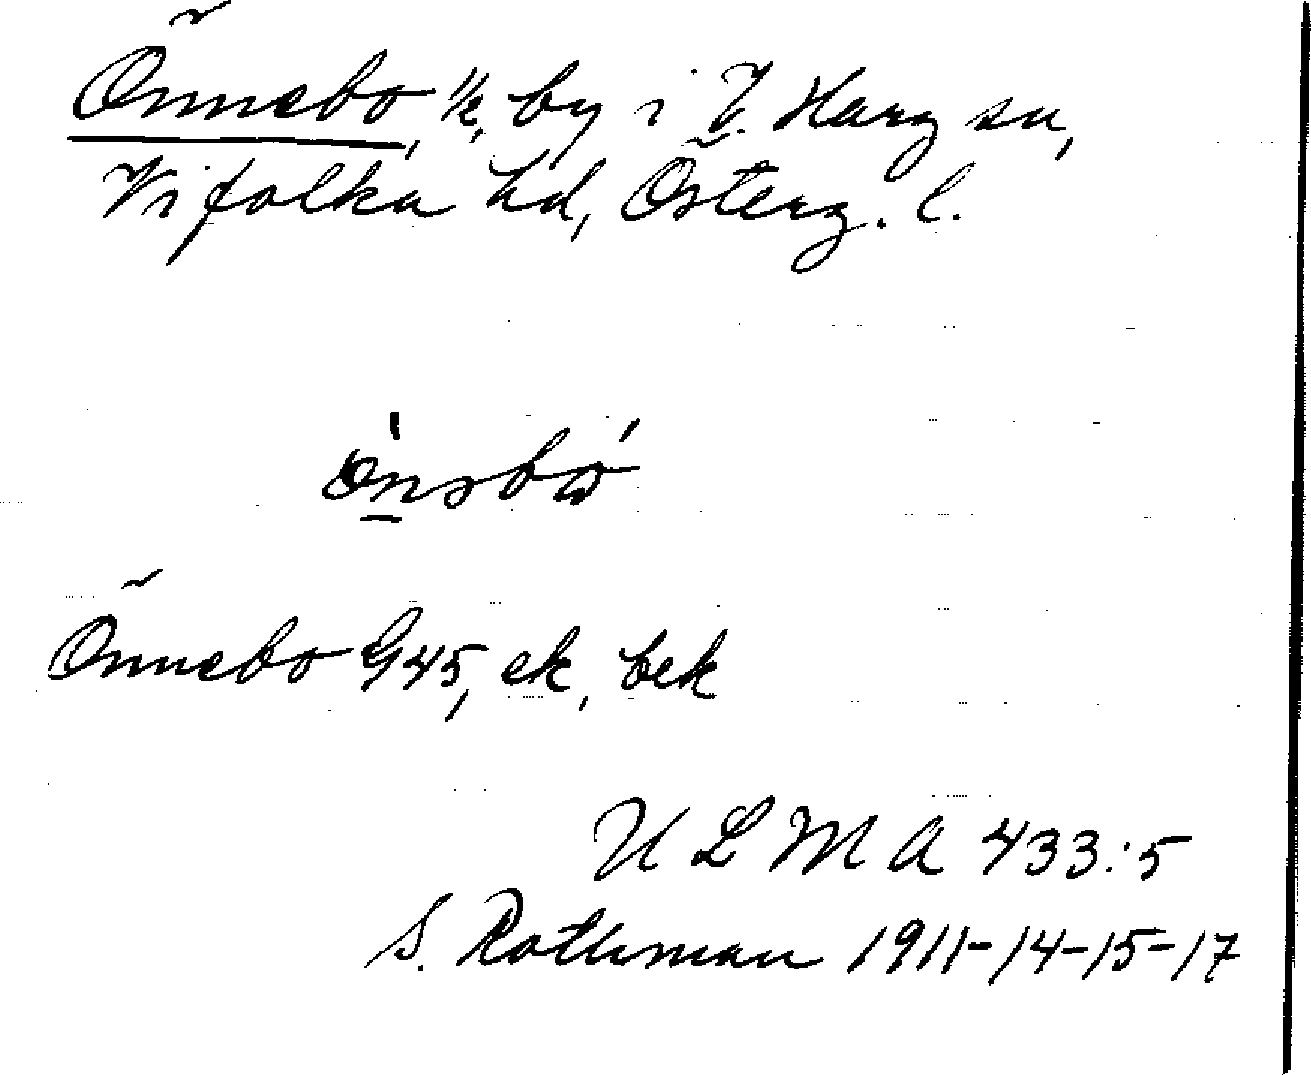 Önnebo, 1/2, by i V. Harg sn,
Vifolka hd, Österg. l.
Önnebo G45, ek, bek
U L M A 433:5
S. Rothman 1911-14-15-17